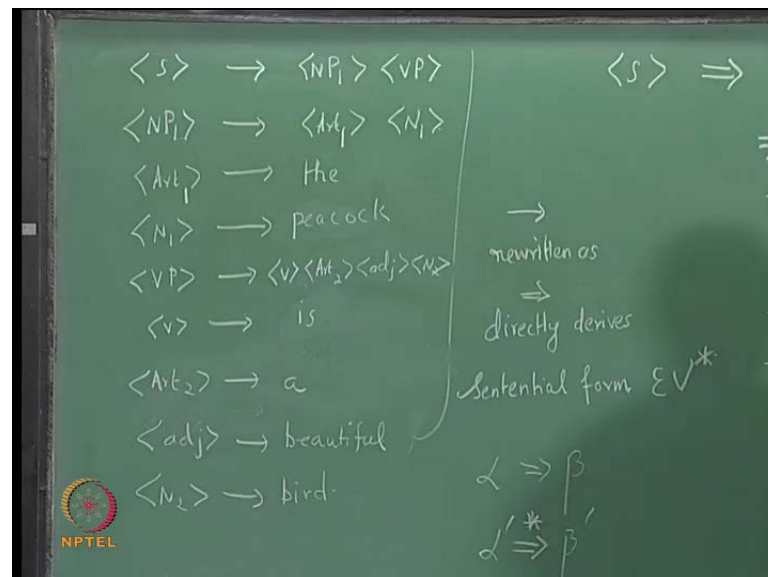 <S> → <NP₁> <VP>
<NP₁> → <Art₁> <N₁>
<Art₁> → the
<N₁> → peacock
<VP> → <V><Art₂><adj><N₂>
<V> → is
<Art₂> → a
<adj> → beautiful
<N₂> → bird.
<S> ⇒
⇒
→
rewritten as
⇒
directly derives
Sentential form ∈ V*
α ⇒ β
α' ⇒* β'
NPTEL